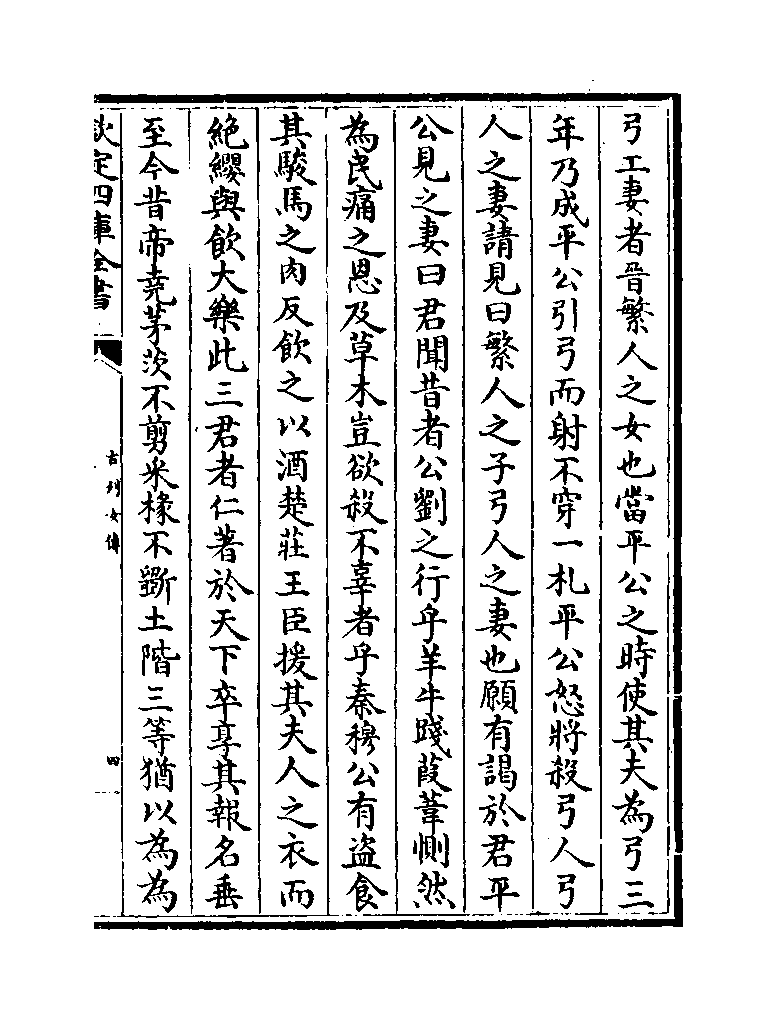 弓工妻者晉繁人之女也當平公之時使其夫為弓三
年乃成平公引弓而射不穿一札平公怒將殺弓人弓
人之妻請見曰繁人之子弓人之妻也願有謁於君平
公見之妻曰君聞昔者公劉之行乎羊牛踐葭葦惻然
為民痛之恩及草木豈欲殺不辜者乎秦穆公有盜食
其駿馬之肉反飲之以酒楚莊王臣援其夫人之衣而
絕纓與飲大樂此三君者仁著於天下卒享其報名垂
至今昔帝堯茅茨不剪采椽不斵土階三等猶以為為
欽定四庫全書
古列女傳
四